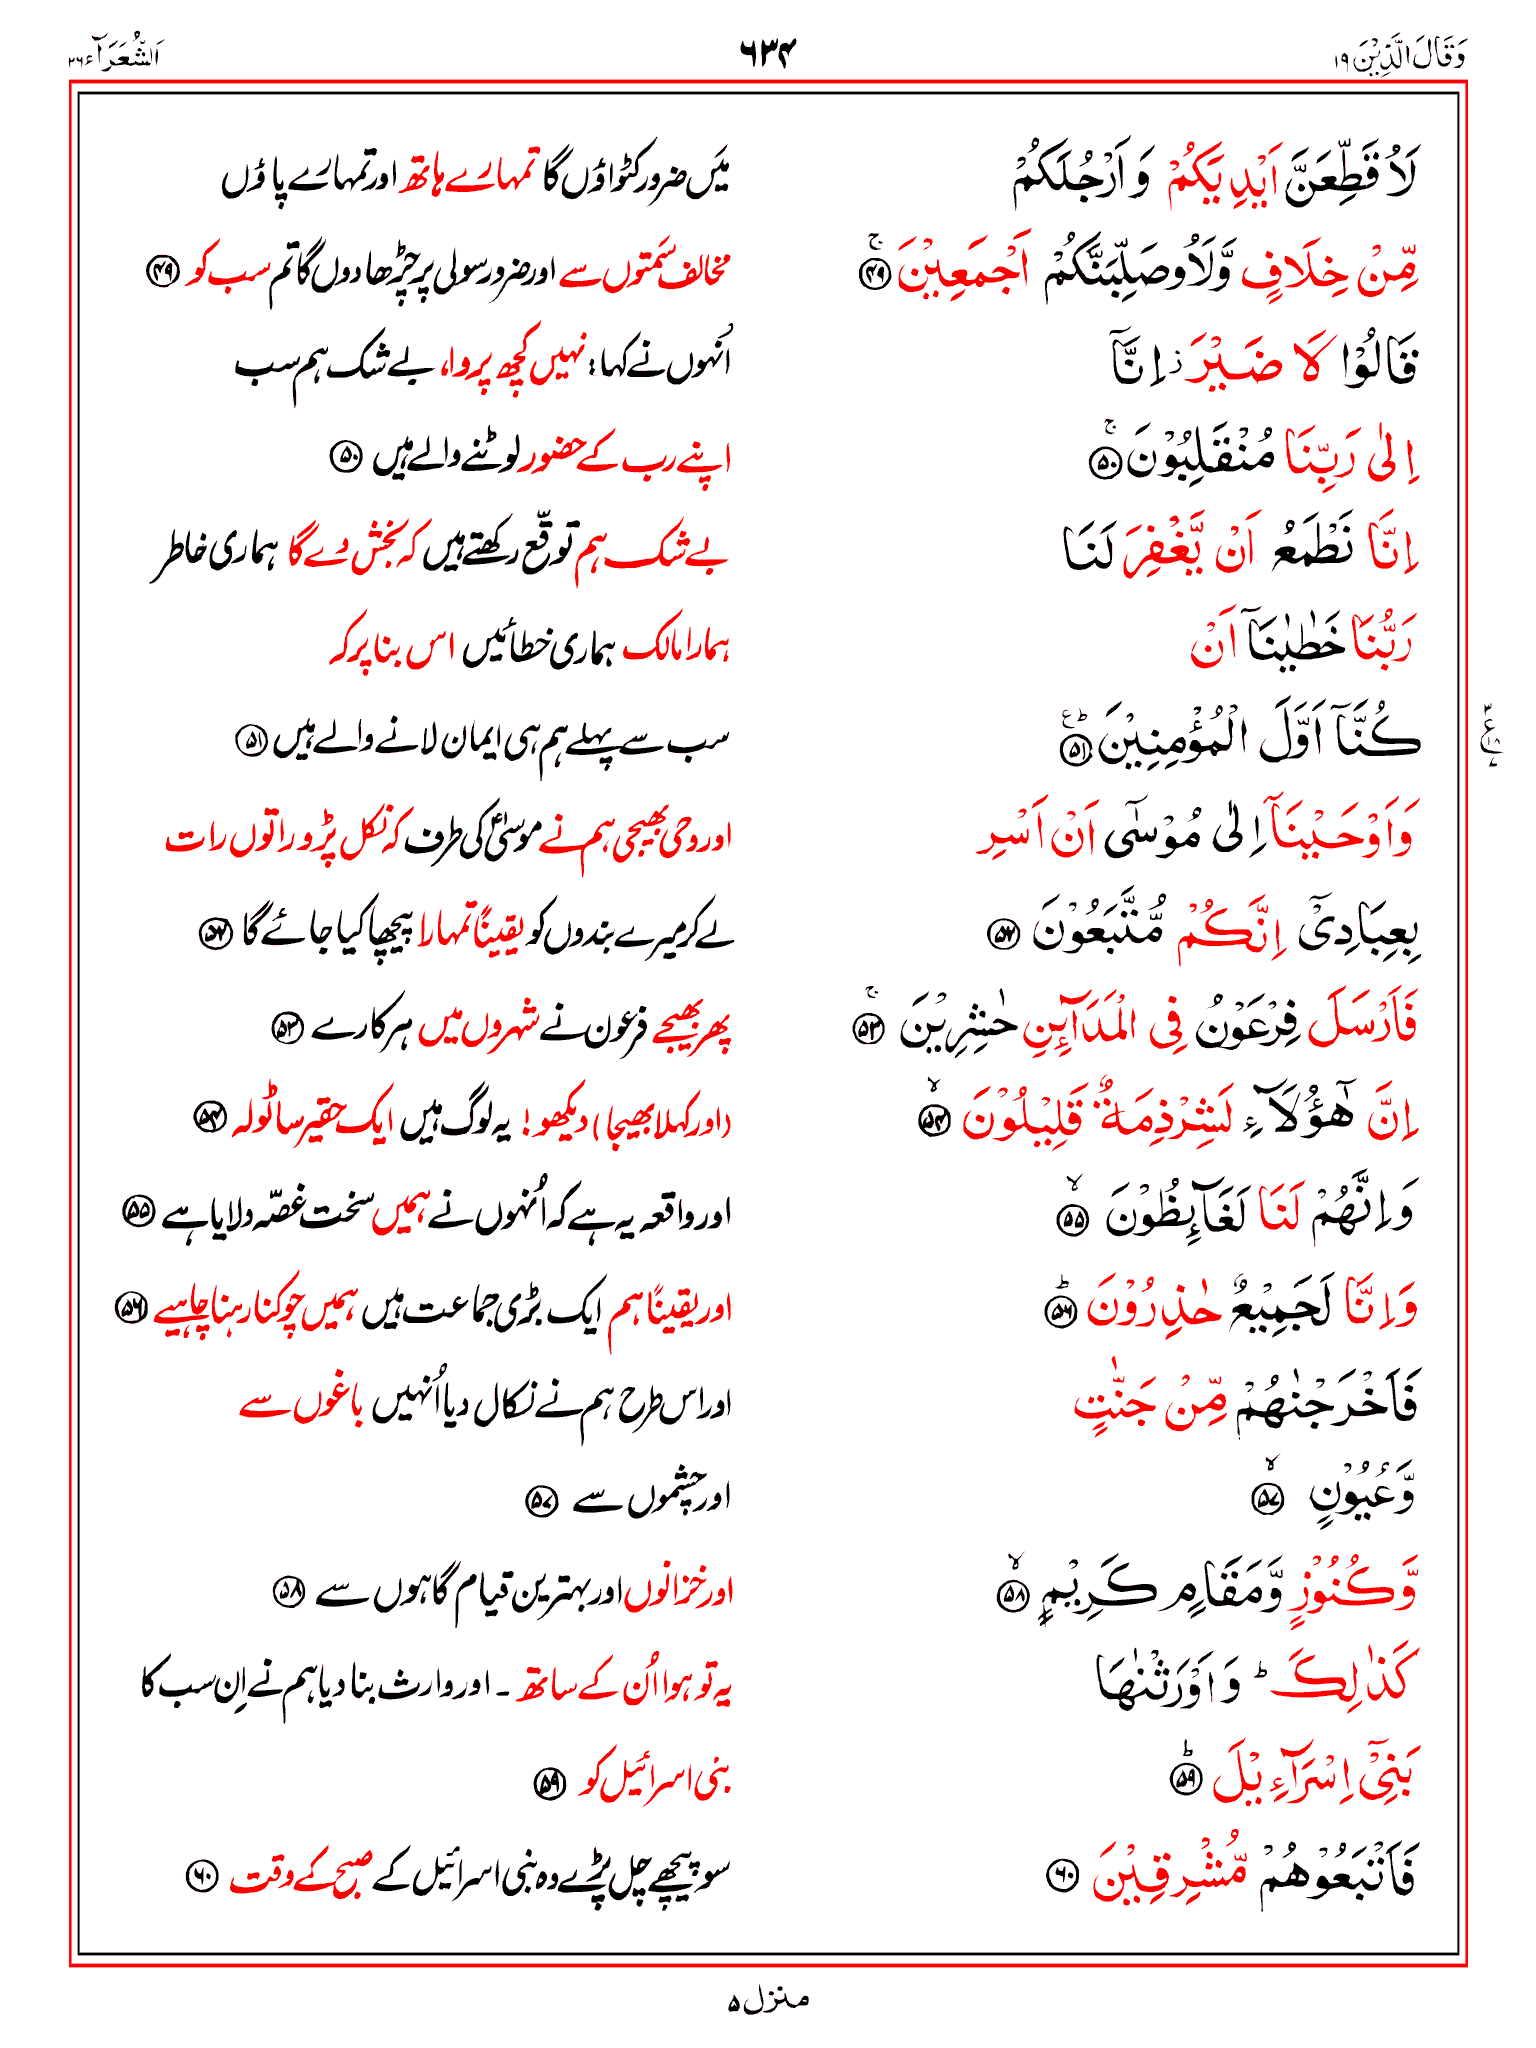 وَقَالَ الَّذِيْنَ ۱۹
۶۳۴
اَلشُّعَرَآء ۲۶
لَاُقَطِّعَنَّ اَيْدِيَكُمْ وَاَرْجُلَكُمْ
میَں ضرور کٹواؤں گا تمہارے ہاتھ اور تمہارے پاؤں
مِّنْ خِلَافٍ وَّلَاُوصَلِّبَنَّكُمْ اَجْمَعِيْنَ ۚ ﴿۴۹﴾
مخالف سَمتوں سے اور ضرور سولی پر چڑھا دوں گا تم سب کو ﴿۴۹﴾
قَالُوْا لَا ضَيْرَ ز اِنَّآ
اُنہوں نے کہا: نہیں کچھ پروا، بے شک ہم سب
اِلٰى رَبِّنَا مُنْقَلِبُوْنَ ۚ ﴿۵۰﴾
اپنے رب کے حضور لوٹنے والے ہیں ﴿۵۰﴾
اِنَّا نَطْمَعُ اَنْ يَّغْفِرَ لَنَا
بے شک ہم توقّع رکھتے ہیں کہ بخش دے گا ہماری خاطر
رَبُّنَا خَطٰيٰنَآ اَنْ
ہمارا مالک ہماری خطائیں اس بنا پر کہ
كُنَّآ اَوَّلَ الْمُؤْمِنِيْنَ ؕع ﴿۵۱﴾
سب سے پہلے ہم ہی ایمان لانے والے ہیں ﴿۵۱﴾
وَاَوْحَيْنَآ اِلٰى مُوْسٰٓى اَنْ اَسْرِ
اور وحی بھیجی ہم نے موسیٰؑ کی طرف کہ نکل پڑو راتوں رات
بِعِبَادِيْٓ اِنَّكُمْ مُّتَّبَعُوْنَ ﴿۵۲﴾
لے کر میرے بندوں کو یقیناً تمہارا پیچھا کیا جائے گا ﴿۵۲﴾
فَاَرْسَلَ فِرْعَوْنُ فِى الْمَدَآئِنِ حٰشِرِيْنَ ۚ ﴿۵۳﴾
پھر بھیجے فرعون نے شہروں میں ہرکارے ﴿۵۳﴾
اِنَّ هٰٓؤُلَآءِ لَشِرْذِمَةٌ قَلِيْلُوْنَ ۙ ﴿۵۴﴾
(اور کہلا بھیجا) دیکھو! یہ لوگ ہیں ایک حقیر سا ٹولہ ﴿۵۴﴾
وَاِنَّهُمْ لَنَا لَغَآئِظُوْنَ ۙ ﴿۵۵﴾
اور واقعہ یہ ہے کہ اُنہوں نے ہمیں سخت غصّہ دلایا ہے ﴿۵۵﴾
وَاِنَّا لَجَمِيْعٌ حٰذِرُوْنَ ؕ ﴿۵۶﴾
اور یقیناً ہم ایک بڑی جماعت ہیں ہمیں چوکنا رہنا چاہیے ﴿۵۶﴾
فَاَخْرَجْنٰهُمْ مِّنْ جَنّٰتٍ
اور اس طرح ہم نے نکال دیا اُنہیں باغوں سے
وَّعُيُوْنٍ ۙ ﴿۵۷﴾
اور چشموں سے ﴿۵۷﴾
وَّكُنُوْزٍ وَّمَقَامٍ كَرِيْمٍ ۙ ﴿۵۸﴾
اور خزانوں اور بہترین قیام گاہوں سے ﴿۵۸﴾
كَذٰلِكَ ؕ وَاَوْرَثْنٰهَا
یہ تو ہوا اُن کے ساتھ ۔ اور وارث بنا دیا ہم نے اِن سب کا
بَنِيْٓ اِسْرَآءِيْلَ ؕ ﴿۵۹﴾
بنی اسرائیل کو ﴿۵۹﴾
فَاَتْبَعُوْهُمْ مُّشْرِقِيْنَ ﴿۶۰﴾
سو پیچھے چل پڑے وہ بنی اسرائیل کے صبح کے وقت ﴿۶۰﴾
منزل ۵